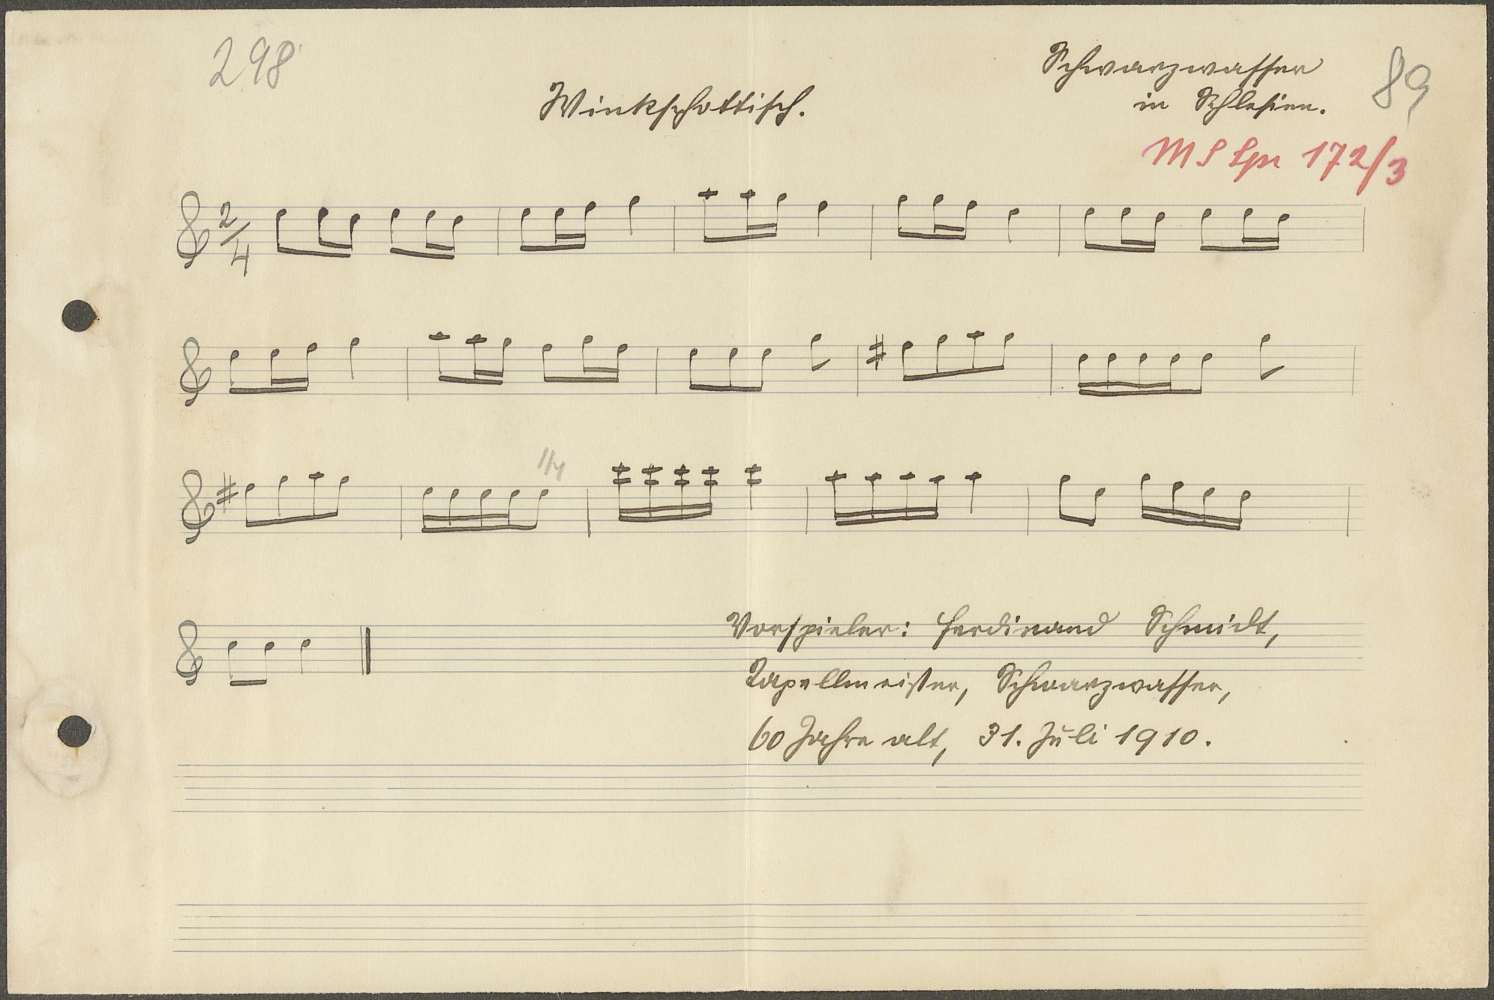 298
Schwarzwasser
89
Winkschottisch.
in Schlesien.
2/4
Vorspieler: Ferdinand Schmidt,
Kapellmeister, Schwarzwasser,
60 Jahre alt, 31. Juli 1910.
172/3